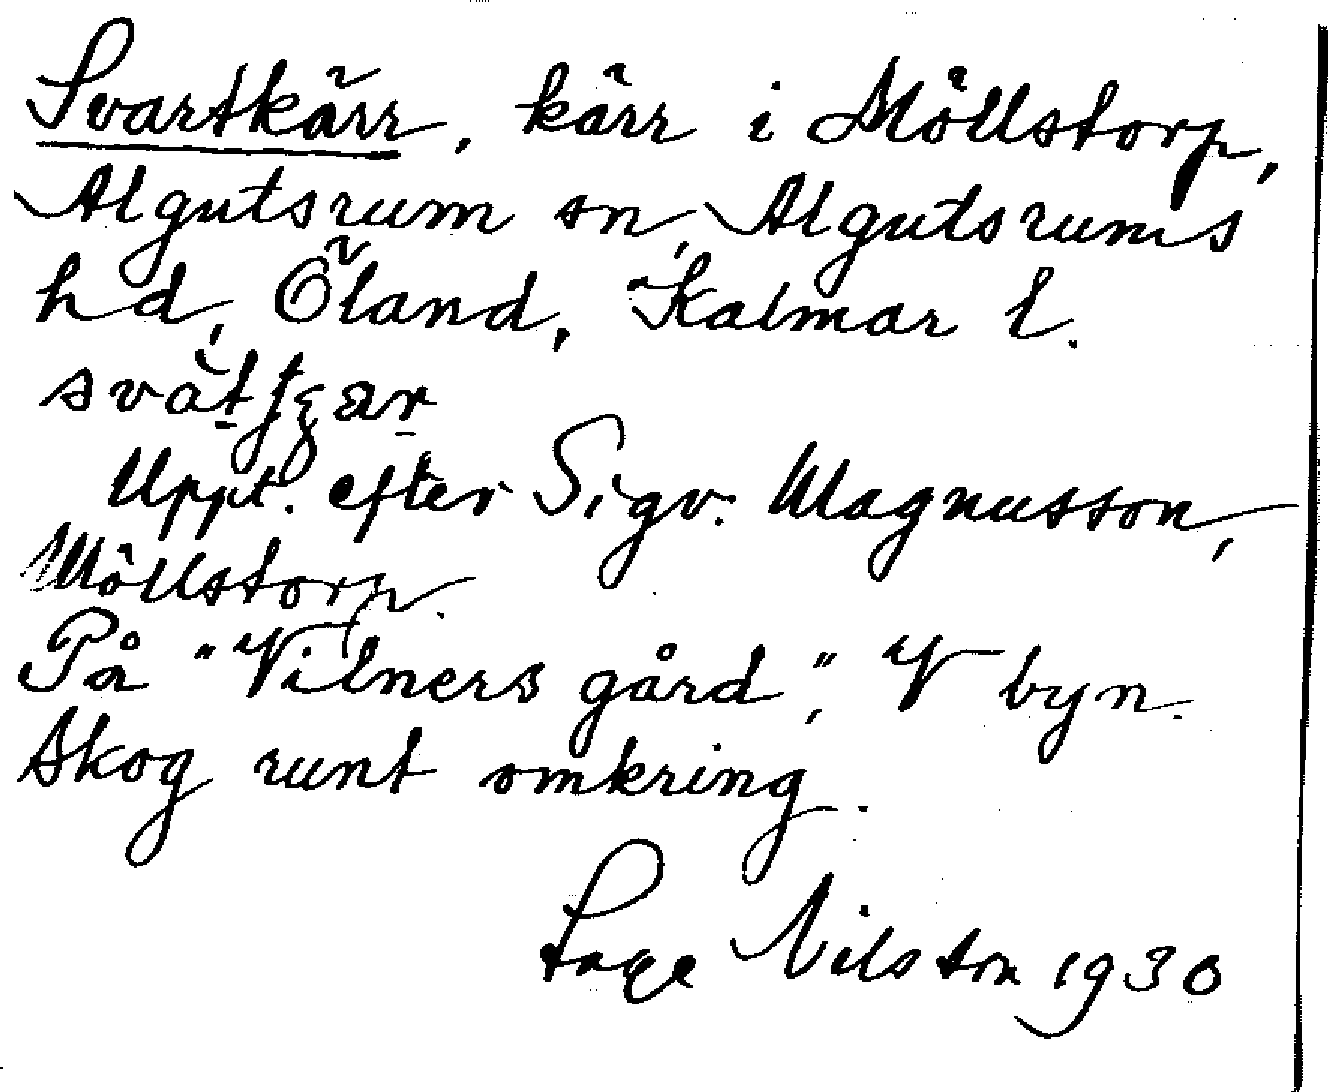 Svartkärr, kärr i Möllstorp,
Algutsrum sn, Algutsrums
hd, Öland, Kalmar l.
Uppt. efter Sigv. Magnusson,
Möllstorp.
På "Vilners gård", V byn.
Skog runt omkring.
Nilsson 1930